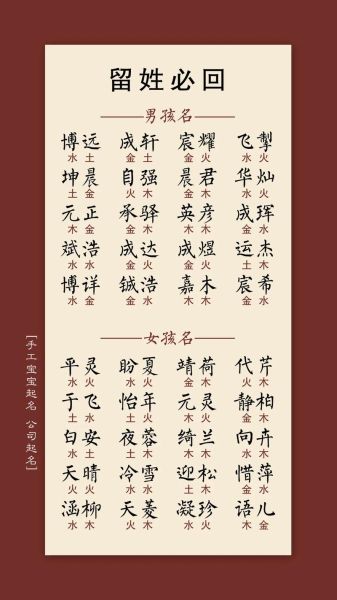 留姓必回
男孩名
博远 成轩 宸耀 飞掣
水土 金土 金火 水火
坤晨 自强 晨君 华灿
土金 火木 金木 水火
元正 承驿 英彦 成珲
木金 金火 木木 金水
斌浩 成达 成煜 运杰
水水 金火 金火 土木
博详 铖浩 嘉木 宸希
水金 金水 木木 金水
女孩名
平灵 盼夏 靖荷 代芹
水火 水火 金木 火木
于飞 怡年 元灵 静柏
土水 土火 木火 金木
白安 夜蓉 绮兰 向卉
水土 水木 木木 水木
天晴 冷雪 迎松 惜萍
火火 水水 土木 金水
涵柳 天菱 凝珍 语儿
水木 火木 水火 木金
[手工宝宝起名 公司起名]